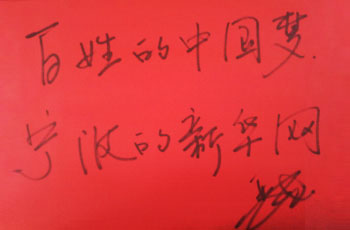 百姓的中国梦
宁波的新华网